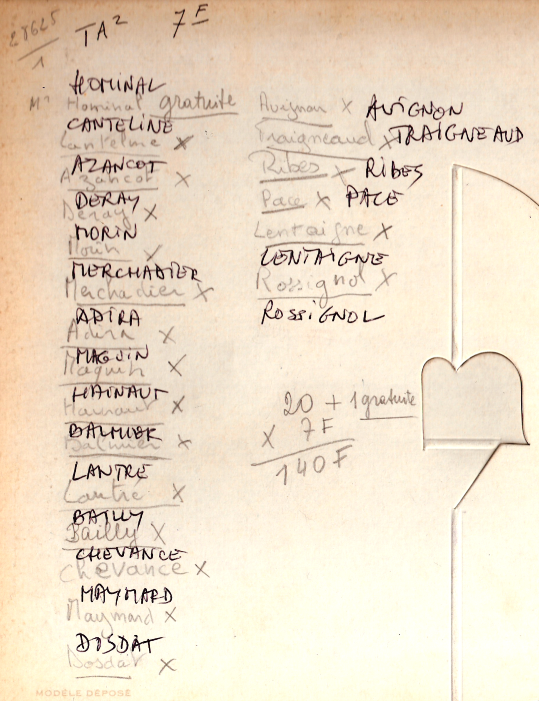 28625
1
TA² 7F
HOMINAL
Mr Hominal gratuite
CANTELINE
Cantelme x
AZANCOT
Azancot x
DERAY
Deray x
MORIN
Morin x
MERCHADIER
Merchadier x
ADIRA
Adira x
MAGUIN
Maguin x
HAINAUT
Hainaut x
BALMIER
Balmier x
LANTRE
Lantré x
BAILLY
Bailly x
CHEVANCE
Chevance x
MAYMARD
Maymard x
DOSDAT
Dosdat x
Avignon x AVIGNON
Traigneaud x TRAIGNEAUD
Ribes x RIBES
Pace x PACE
Lentaigne x
LENTAIGNE
Rossignol x
ROSSIGNOL
20 + 1 gratuite
x 7F
140F
MODÈLE DÉPOSÉ